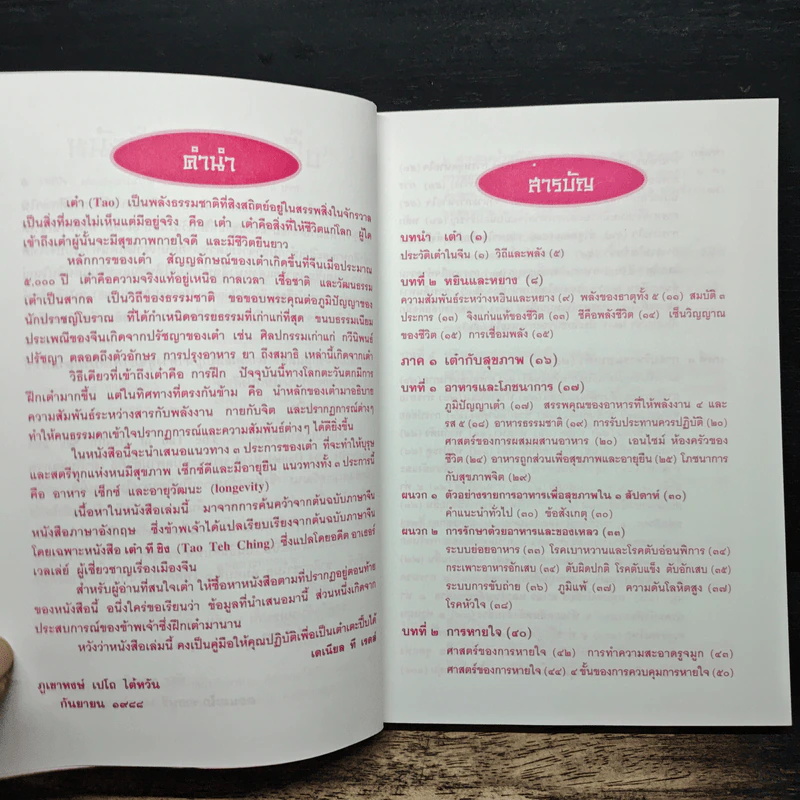 คำนำ
เต๋า (Tao) เป็นพลังธรรมชาติที่สิงสถิตย์อยู่ในสรรพสิ่งในจักรวาล
เป็นสิ่งที่มองไม่เห็นแต่มีอยู่จริง คือ เต๋า เต๋าคือสิ่งที่ให้ชีวิตแก่โลก ผู้ใด
เข้าถึงเต๋าผู้นั้นจะมีสุขภาพกายใจดี และมีชีวิตยืนยาว
หลักการของเต๋า สัญญลักษณ์ของเต๋าเกิดขึ้นที่จีนเมื่อประมาณ
๕,๐๐๐ ปี เต๋าคือความจริงแท้อยู่เหนือ กาลเวลา เชื้อชาติ และวัฒนธรรม
เต๋าเป็นสากล เป็นวิถีของธรรมชาติ ขอขอบพระคุณต่อภูมิปัญญาของ
นักปราชญ์โบราณ ที่ได้กำเหนิดอารยธรรมที่เก่าแก่ที่สุด ขนบธรรมเนียม
ประเพณีของจีนเกิดจากปรัชญาของเต๋า เช่น ศิลปกรรมเก่าแก่ กวีนิพนธ์
ปรัชญา ตลอดถึงตัวอักษร การปรุงอาหาร ยา ถึงสมาธิ เหล่านี้เกิดจากเต๋า
วิธีเดียวที่เข้าถึงเต๋าคือ การฝึก ปัจจุบันนี้ทางโลกตะวันตกมีการ
ฝึกเต๋ามากขึ้น แต่ในทิศทางที่ตรงกันข้าม คือ นำหลักของเต๋ามาอธิบาย
ความสัมพันธ์ระหว่างสารกับพลังงาน กายกับจิต และปรากฏการณ์ต่างๆ
ทำให้คนธรรมดาเข้าใจปรากฏการณ์และความสัมพันธ์ต่างๆ ได้ดียิ่งขึ้น
ในหนังสือนี้จะนำเสนอแนวทาง ๓ ประการของเต๋า ที่จะทำให้บุรุษ
และสตรีทุกแห่งหนมีสุขภาพ เซ็กซ์ดีและมีอายุยืน แนวทางทั้ง ๓ ประการนี้
คือ อาหาร เซ็กซ์ และอายุวัฒนะ (longevity)
เนื้อหาในหนังสือเล่มนี้ มาจากการค้นคว้าจากต้นฉบับภาษาจีน
หนังสือภาษาอังกฤษ ซึ่งข้าพเจ้าได้แปลเรียบเรียงจากต้นฉบับภาษาจีน
โดยเฉพาะหนังสือ เต๋า ที ยิง (Tao Teh Ching) ซึ่งแปลโดยอดีต อาเธอร์
เวลเล่ย์ ผู้เชี่ยวชาญเรื่องเมืองจีน
สำหรับผู้อ่านที่สนใจเต๋า ให้ซื้อหาหนังสือตามที่ปรากฏอยู่ตอนท้าย
ของหนังสือนี้ อนึ่งใคร่ขอเรียนว่า ข้อมูลที่นำเสนอมานี้ ส่วนหนึ่งเกิดจาก
ประสบการณ์ของข้าพเจ้าซึ่งฝึกเต๋ามานาน
หวังว่าหนังสือเล่มนี้ คงเป็นคู่มือให้คุณปฏิบัติเพื่อเป็นเต๋าเตะปี๊บได้
เดเนียล ที เรดส์
ภูเขาหงษ์ เปโถ ไต้หวัน
กันยายน ๑๙๘๘
สารบัญ
บทนำ เต๋า (๑)
ประวัติเต๋าในจีน (๑) วิถีและพลัง (๕)
บทที่ ๒ หยินและหยาง (๘)
ความสัมพันธ์ระหว่างหยินและหยาง (๙) พลังของธาตุทั้ง ๕ (๑๑) สมบัติ ๓
ประการ (๑๓) จิงแก่นแท้ของชีวิต (๑๓) ชีคือพลังชีวิต (๑๔) เซ็นวิญญาณ
ของชีวิต (๑๕) การเชื่อมพลัง (๑๕)
ภาค ๑ เต๋ากับสุขภาพ (๑๖)
บทที่ ๑ อาหารและโภชนาการ (๑๗)
ภูมิปัญญาเต๋า (๑๗) สรรพคุณของอาหารที่ให้พลังงาน ๔ และ
รส ๕ (๑๘) อาหารธรรมชาติ (๑๙) การรับประทานควรปฏิบัติ (๒๐)
ศาสตร์ของการผสมผสานอาหาร (๒๐) เอนไซม์ ห้องครัวของ
ชีวิต (๒๔) อาหารถูกส่วนเพื่อสุขภาพและอายุยืน (๒๕) โภชนาการ
กับสุขภาพจิต (๒๙)
ผนวก ๑ ตัวอย่างรายการอาหารเพื่อสุขภาพใน ๑ สัปดาห์ (๓๐)
คำแนะนำทั่วไป (๓๐) ข้อสังเกตุ (๓๐)
ผนวก ๒ การรักษาด้วยอาหารและของเหลว (๓๓)
ระบบย่อยอาหาร (๓๓) โรคเบาหวานและโรคตับอ่อนพิการ (๓๔)
กระเพาะอาหารอักเสบ (๓๔) ตับผิดปกติ โรคตับแข็ง ตับอักเสบ (๓๕)
ระบบการขับถ่าย (๓๖) ภูมิแพ้ (๓๗) ความดันโลหิตสูง (๓๗)
โรคหัวใจ (๓๘)
บทที่ ๒ การหายใจ (๔๐)
ศาสตร์ของการหายใจ (๔๒) การทำความสะอาดรูจมูก (๔๓)
ศาสตร์ของการหายใจ (๔๔) ๔ ขั้นของการควบคุมการหายใจ (๕๐)